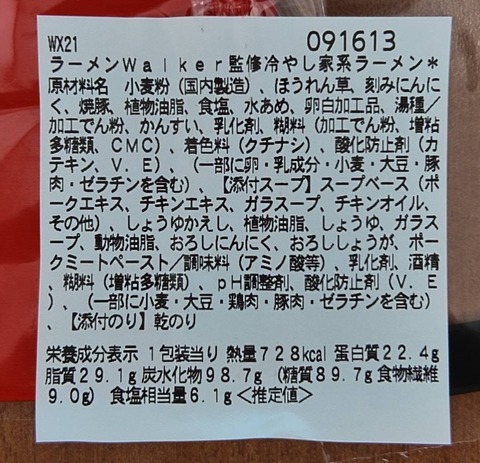 WX21 091613
ラーメンWalker監修冷やし家系ラーメン*
原材料名 小麦粉(国内製造)、ほうれん草、刻みにんに
く、焼豚、植物油脂、食塩、水あめ、卵白加工品、湯種/
加工でん粉、かんすい、乳化剤、糊料(加工でん粉、増粘
多糖類、CMC)、着色料(クチナシ)、酸化防止剤(カ
テキン、V.E)、(一部に卵・乳成分・小麦・大豆・豚
肉・ゼラチンを含む)、【添付スープ】スープベース(ポ
ークエキス、チキンエキス、ガラスープ、チキンオイル、
その他)、しょうゆかえし、植物油脂、しょうゆ、ガラス
ープ、動物油脂、おろしにんにく、おろししょうが、ポー
クミートペースト/調味料(アミノ酸等)、乳化剤、酒精
、糊料(増粘多糖類)、pH調整剤、酸化防止剤(V.E
)、(一部に小麦・大豆・鶏肉・豚肉・ゼラチンを含む)
、【添付のり】乾のり
栄養成分表示 1包装当り 熱量728kcal 蛋白質22.4g
脂質29.1g 炭水化物98.7g(糖質89.7g 食物繊維
9.0g) 食塩相当量6.1g<推定値>